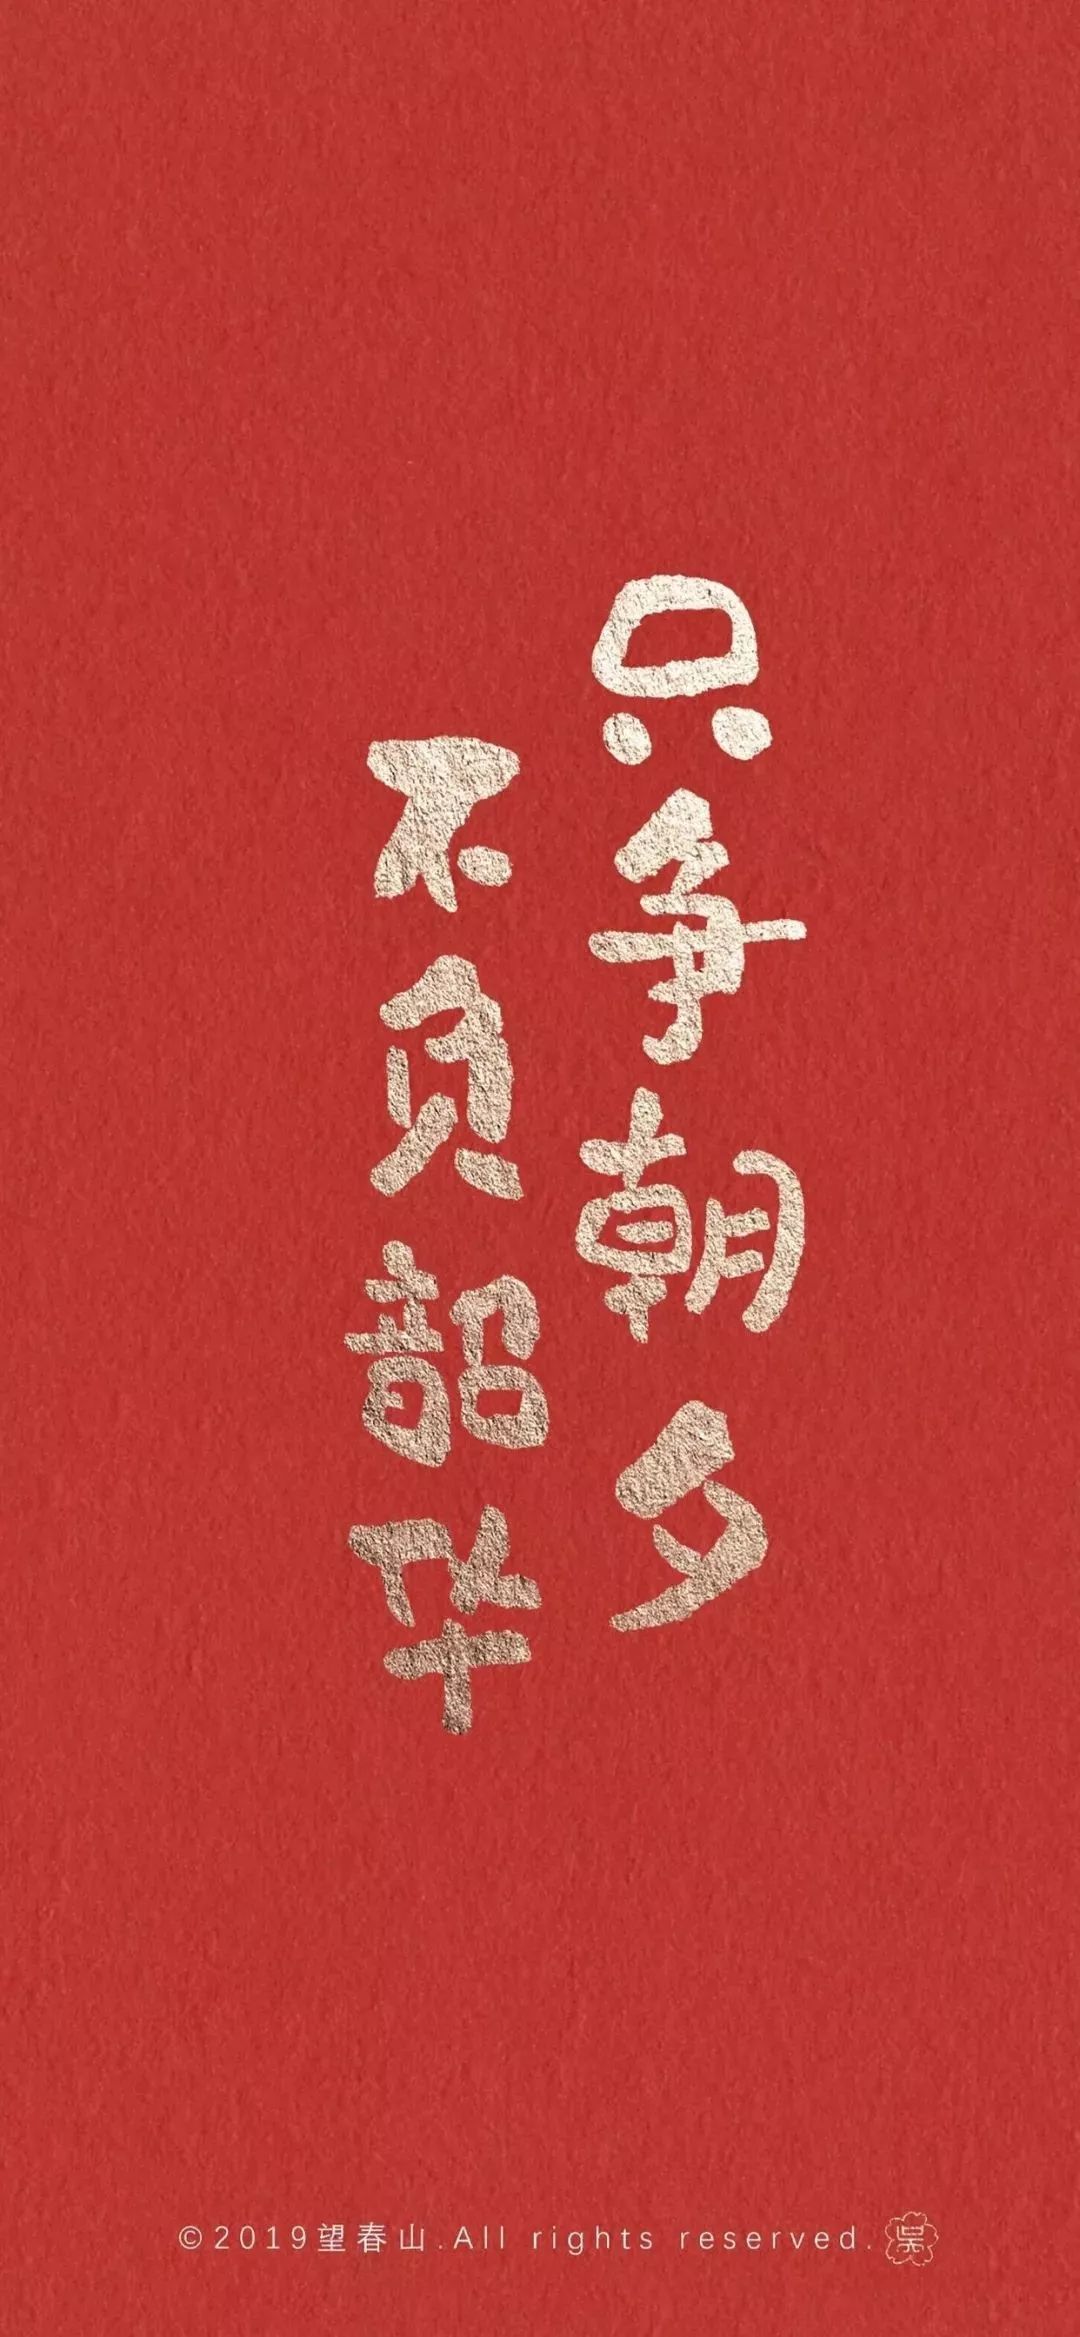 只争朝夕
不负韶华
©2019望春山.All rights reserved.
吴